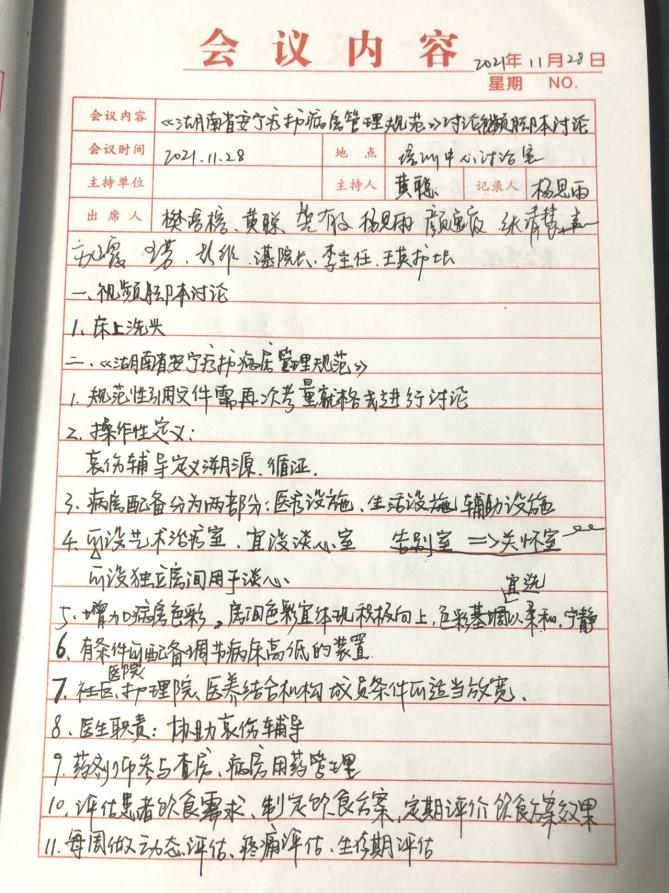 会议内容
2021年11月28日
星期 NO.
会议内容 《湖南省安宁疗护病房管理规范》讨论视频脚本讨论
会议时间 2021.11.28 地点 培训中心讨论室
主持单位 主持人 黄聪 记录人 杨思雨
出席人 黄聪、杨思雨
谌院长、李主任、王英护长
一、视频脚本讨论
1、床上洗头
二、《湖南省安宁疗护病房管理规范》
1、规范性引用文件需再次考量就格式进行讨论
2、操作性定义:
哀伤辅导定义溯源、循证.
3、病房配备分为两部分:医疗设施、生活设施、辅助设施
4、可设艺术治疗室、宜设谈心室 告别室=>关怀室
可设独立房间用于谈心
宜选
5、增加病房色彩,房间色彩宜体现积极向上,色彩基调以柔和、宁静
6、有条件可配备调节病床高低的装置
医院
7、社区、护理院、医养结合机构成员条件可适当放宽.
8、医生职责:协助哀伤辅导
9、药剂师参与查房、病房用药管理
10、评估患者饮食需求、制定饮食方案,定期评价饮食方案效果
11、每周做动态评估、疼痛评估、生存期评估